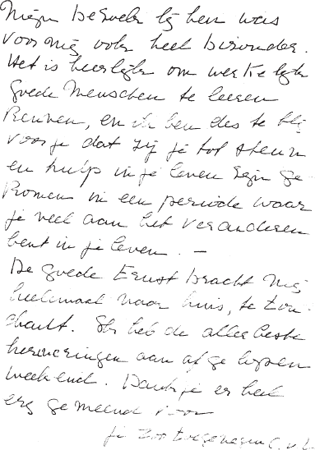 Mijn bezoek bij hen was
voor mij ook heel bizonder.
Het is heerlijk om werkelijk
goede Menschen te leeren
kennen, en ik ben des te blij
voor je dat zij je tot steun
en hulp in je leven zijn ge-
komen in een periode waar
je veel aan het veranderen
bent in je leven. –
De goede Ernst bracht mij
heelemaal naar huis, te
Ik heb de allerbeste
herinneringen aan afgeloopen
Weekend. Dank je er heel
erg gemeend voor
je toegenegen